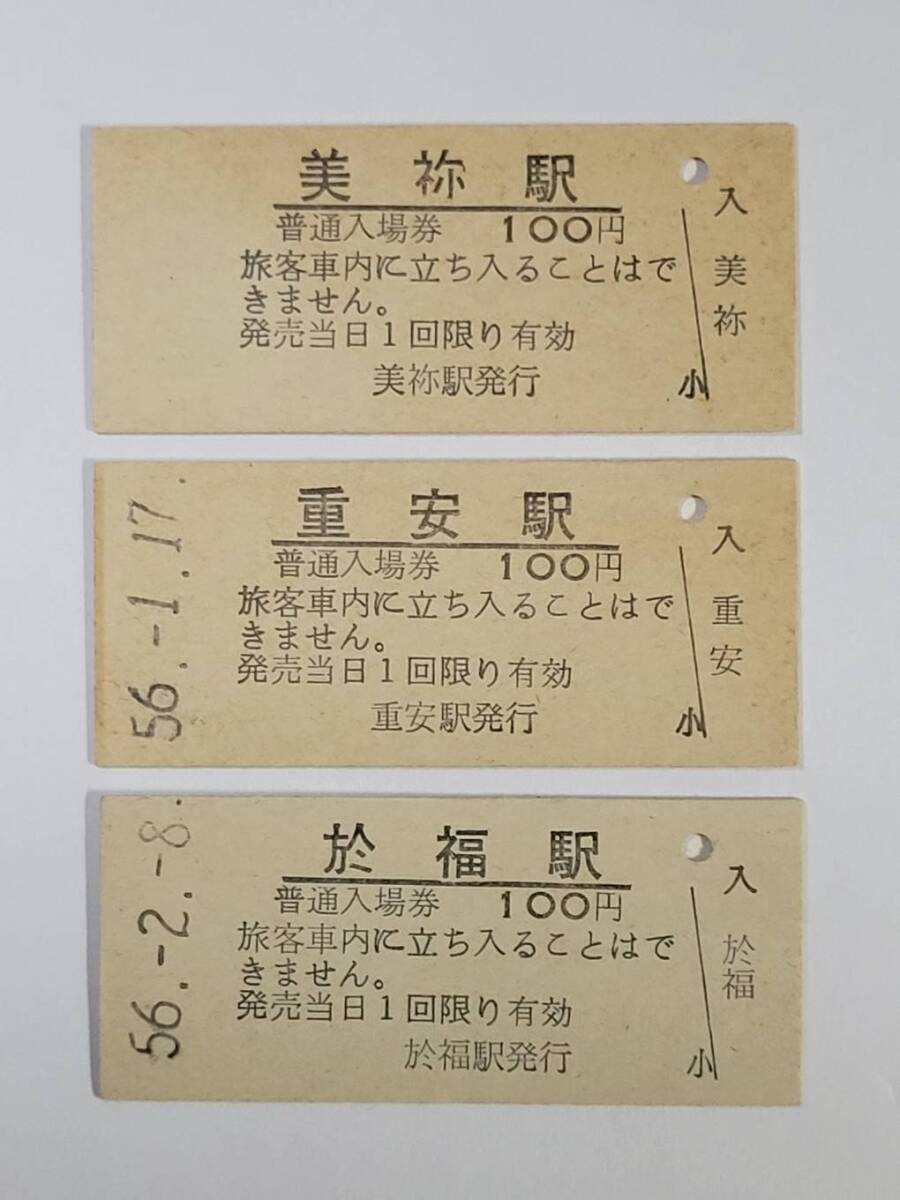 美祢駅
普通入場券 100円
旅客車内に立ち入ることはで
きません。
発売当日1回限り有効
美祢駅発行
入
美祢
小
56.-1.17.
重安駅
普通入場券 100円
旅客車内に立ち入ることはで
きません。
発売当日1回限り有効
重安駅発行
入
重安
小
56.-2.-8.
於福駅
普通入場券 100円
旅客車内に立ち入ることはで
きません。
発売当日1回限り有効
於福駅発行
入
於福
小